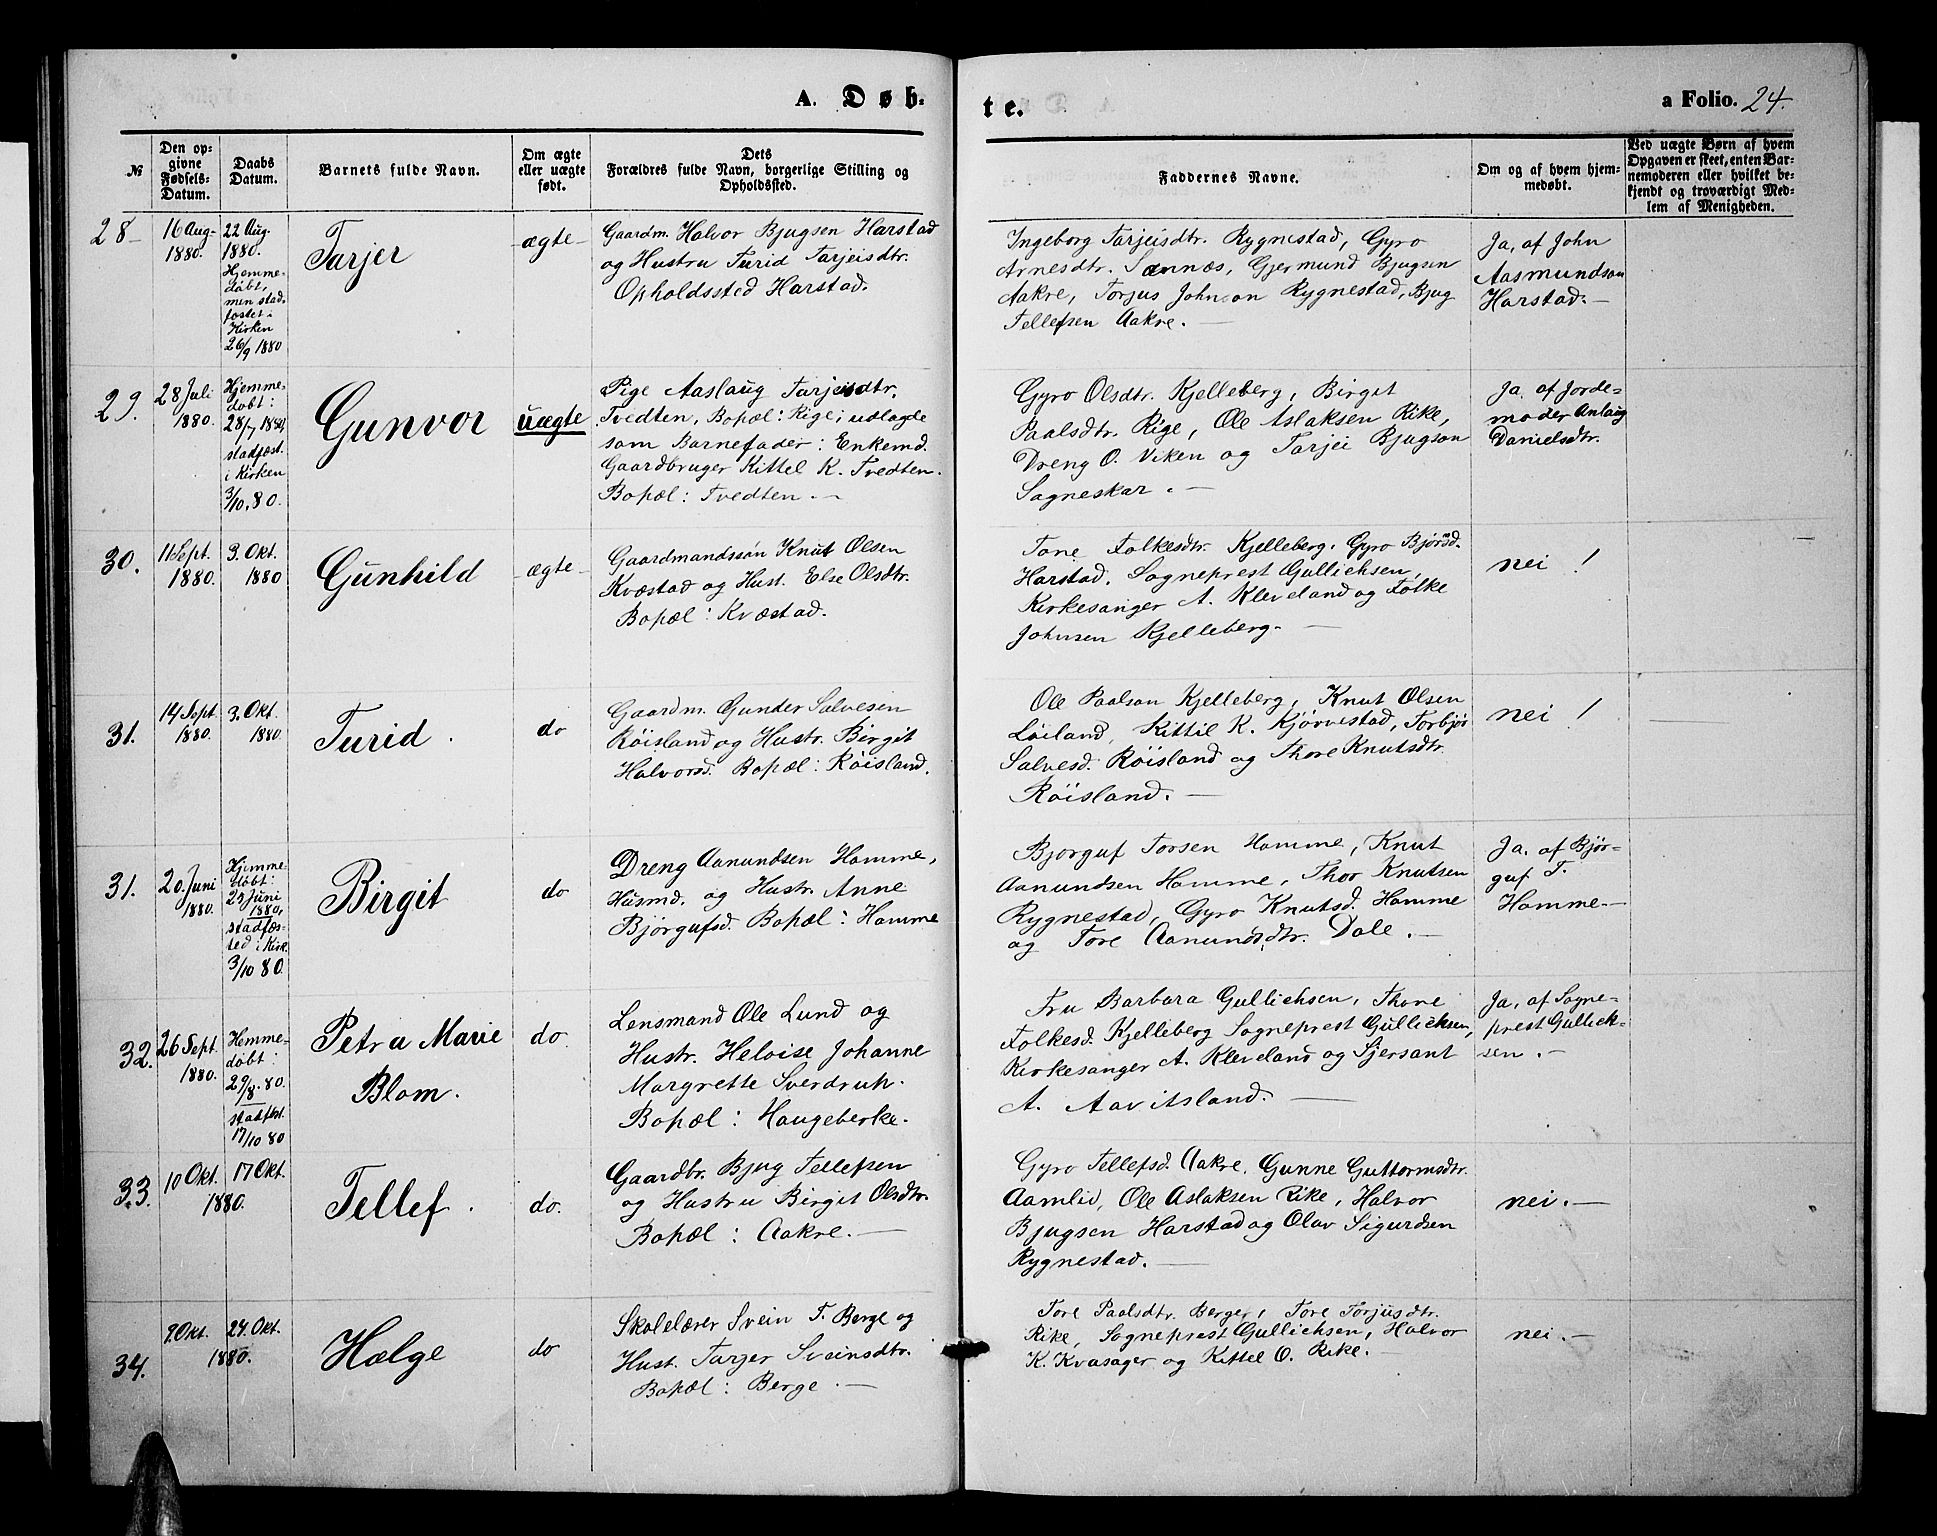 A. Døb-
te.
a Folio. 24.
№
Den op-
givne
Fødsels-
Datum.
Daabs
Datum.
Barnets fulde Navn.
Om ægte
eller uægte
født.
Dets
Forældres fulde Navn, borgerlige Stilling og
Opholdssted.
Faddernes Navne.
Om og af hvem hjem-
medøbt.
Ved uægte Børn af hvem
Opgaven er skeet, enten Bar-
nemoderen eller hvilket be-
kjendt og troværdigt Med-
lem af Menigheden.
28
16 Aug
1880.
22 Aug.
1880.
Hjemme-
døbt,
men stad-
fæstet i
Kirken
26/9 1880
Tarjer
ægte
Gaardm. Halvor Bjugsen Harstad
og Hustru Turid Tarjeisdtr.
Opholdssted Harstad.
Ingeborg Tarjeisdtr. Rygnestad, Gyro
Arnesdtr. Sannæs, Gjermund Bjugsen
Aakre, Torjus Johnson Rygnestad, Bjug
Tellefsen Aakre. —
Ja, af John
Aasmundson
Harstad. —
29.
28 Juli
1880.
Hjemme-
døbt:
28/7 1880,
stadfæst.
i Kirken
3/10. 80.
Gunvor
uægte
Pige Aaslaug Tarjeisdtr.
Tvedten, Bopæl: Rige; udlagde
som Barnefader: Enkemd.
Gaardbruger Kittel K. Tvedten.
Bopæl: Tvedten. —
Gyro Olsdtr. Kjelleberg, Birgit
Paalsdtr. Rige, Ole Aslaksen Rike,
Dreng O. Viken og Tarjei Bjugson
Sagneskar. —
Ja, af Jorde-
moder Anlaug
Danielsdtr.
30.
11 Sept.
1880.
3. Okt.
1880
Gunhild
ægte
Gaardmandssøn Knut Olsen
Kvæstad og Hust. Else Olsdtr.
Bopæl: Kvæstad.
Tone Folkesdtr. Kjelleberg, Gyro Bjørsd.
Harstad. Sogneprest Gullichsen,
Kirkesanger A. Kleveland og Folke
Johnsen Kjelleberg. —
nei !
31.
14 Sept.
1880.
3. Okt.
1880.
Turid.
do
Gaardm. Gunder Salvesen
Röisland og Hustr. Birgit
Halvorsd. Bopæl: Röisland.
Ole Paalson Kjelleberg, Knut Olsen
Löiland, Kittil K. Kjørvestad, Torbjør
Salvesd. Röisland og Thore Knutsdtr.
Röisland. —
nei !
31.
20. Juni
1880.
Hjemme-
døbt:
Juni
1880,
stadfæs-
ted i Kirk.
3/10 80.
Birgit
do
Dreng Aanundsen Homme,
Husmd. og Hustr. Anne
Bjørgufsd. Bopæl: Homme
Bjorguf Torsen Homme, Knut
Aanundsen Homme, Thor Knutsen
Rygnestad, Gyro Knutsd. Homme
og Tore Aanundsdtr. Dale. —
Ja, af Bjør-
guf T.
Homme —
32.
26 Sept.
1880.
Hemme-
døbt:
29/8. 80.
stadfæst.
17/10 80
Petra Marie
Blom.
do.
Lensmand Ole Lund og
Hustr. Heloise Johanne
Margrette Sverdrup.
Bopæl: Haugeberke.
Fru Barbara Gullichsen, Thone
Folkesd. Kjelleberg Sogneprest Gullichsen,
Kirkesanger A. Kleveland og Sjersant
A. Aavitsland. —
Ja, af Sogne-
prest Gullich-
sen. —
33.
10 Okt.
1880.
17 Okt.
Tellef.
do.
Gaardbr. Bjug Tellefsen
og Hustru Birgit Olsdtr.
Bopæl: Aakre. —
Gyro Tellefsd. Aakre, Gunne Guttormsdtr.
Aamlid, Ole Aslaksen Rike, Halvor
Bjugsen Harstad og Olav Sigurdsen
Rygnestad. —
nei. —
34.
9. Okt.
1880.
24. Okt.
Hælge
do
Skolelærer Svein T. Berge og
Hust. Tarjer Sveinsdtr.
Bopæl: Berge. —
Tore Paalsdtr. Berge, Tore Torjusdtr.
Rike, Sogneprest Gullichsen, Halvor
K. Kvasager og Kittel O. Rike. —
nei. —